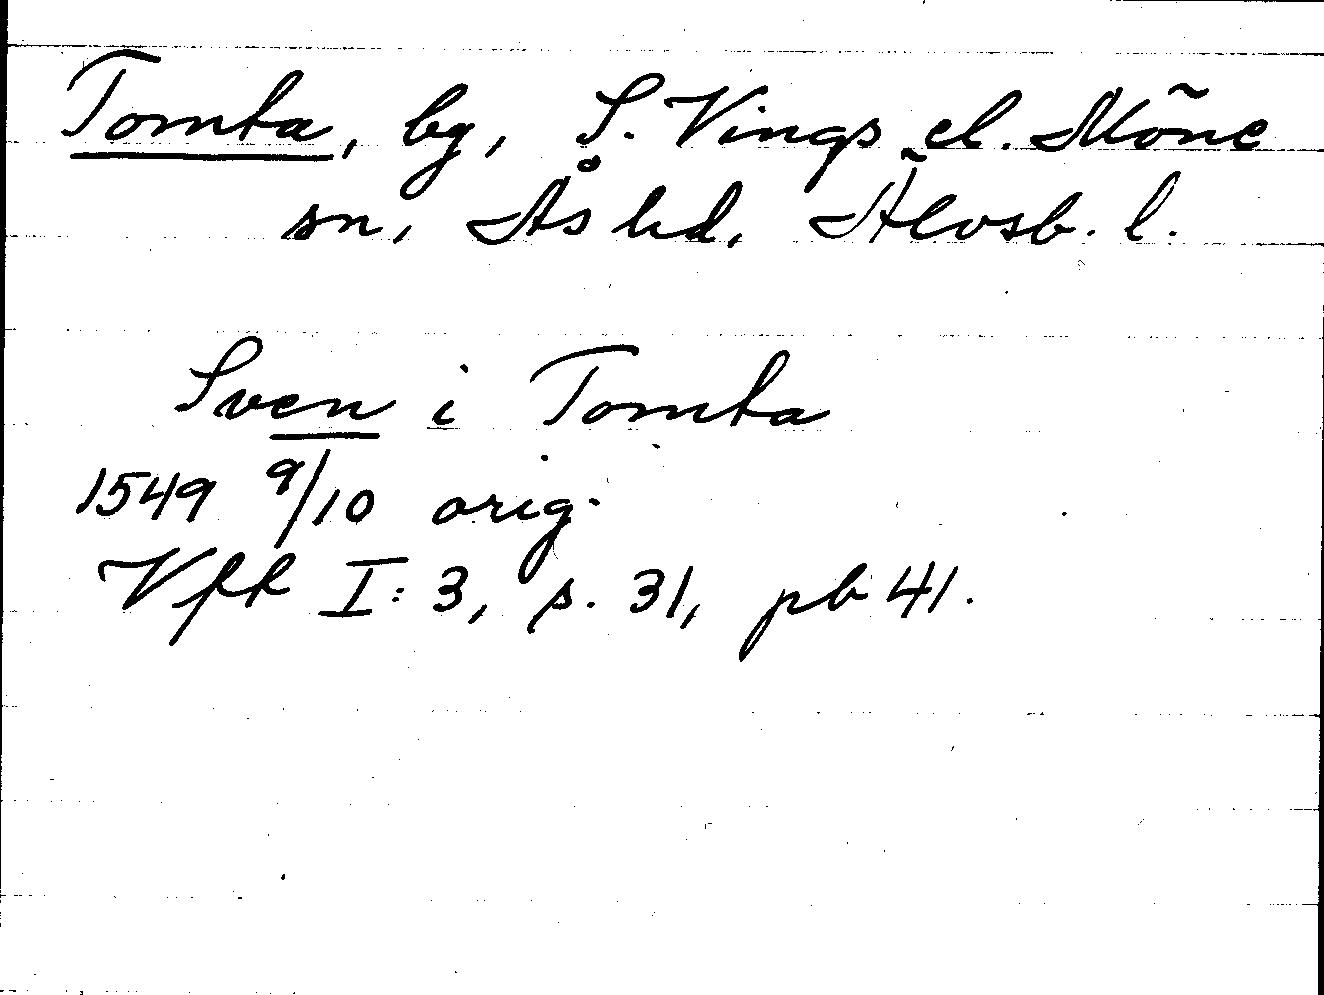 Tomta, by, S. Vings el. Möne
sn, Ås hd, Älvsb. l.
Sven i Tomta
1549 9/10 orig.
Vfk I:3, s. 31, pb 41.